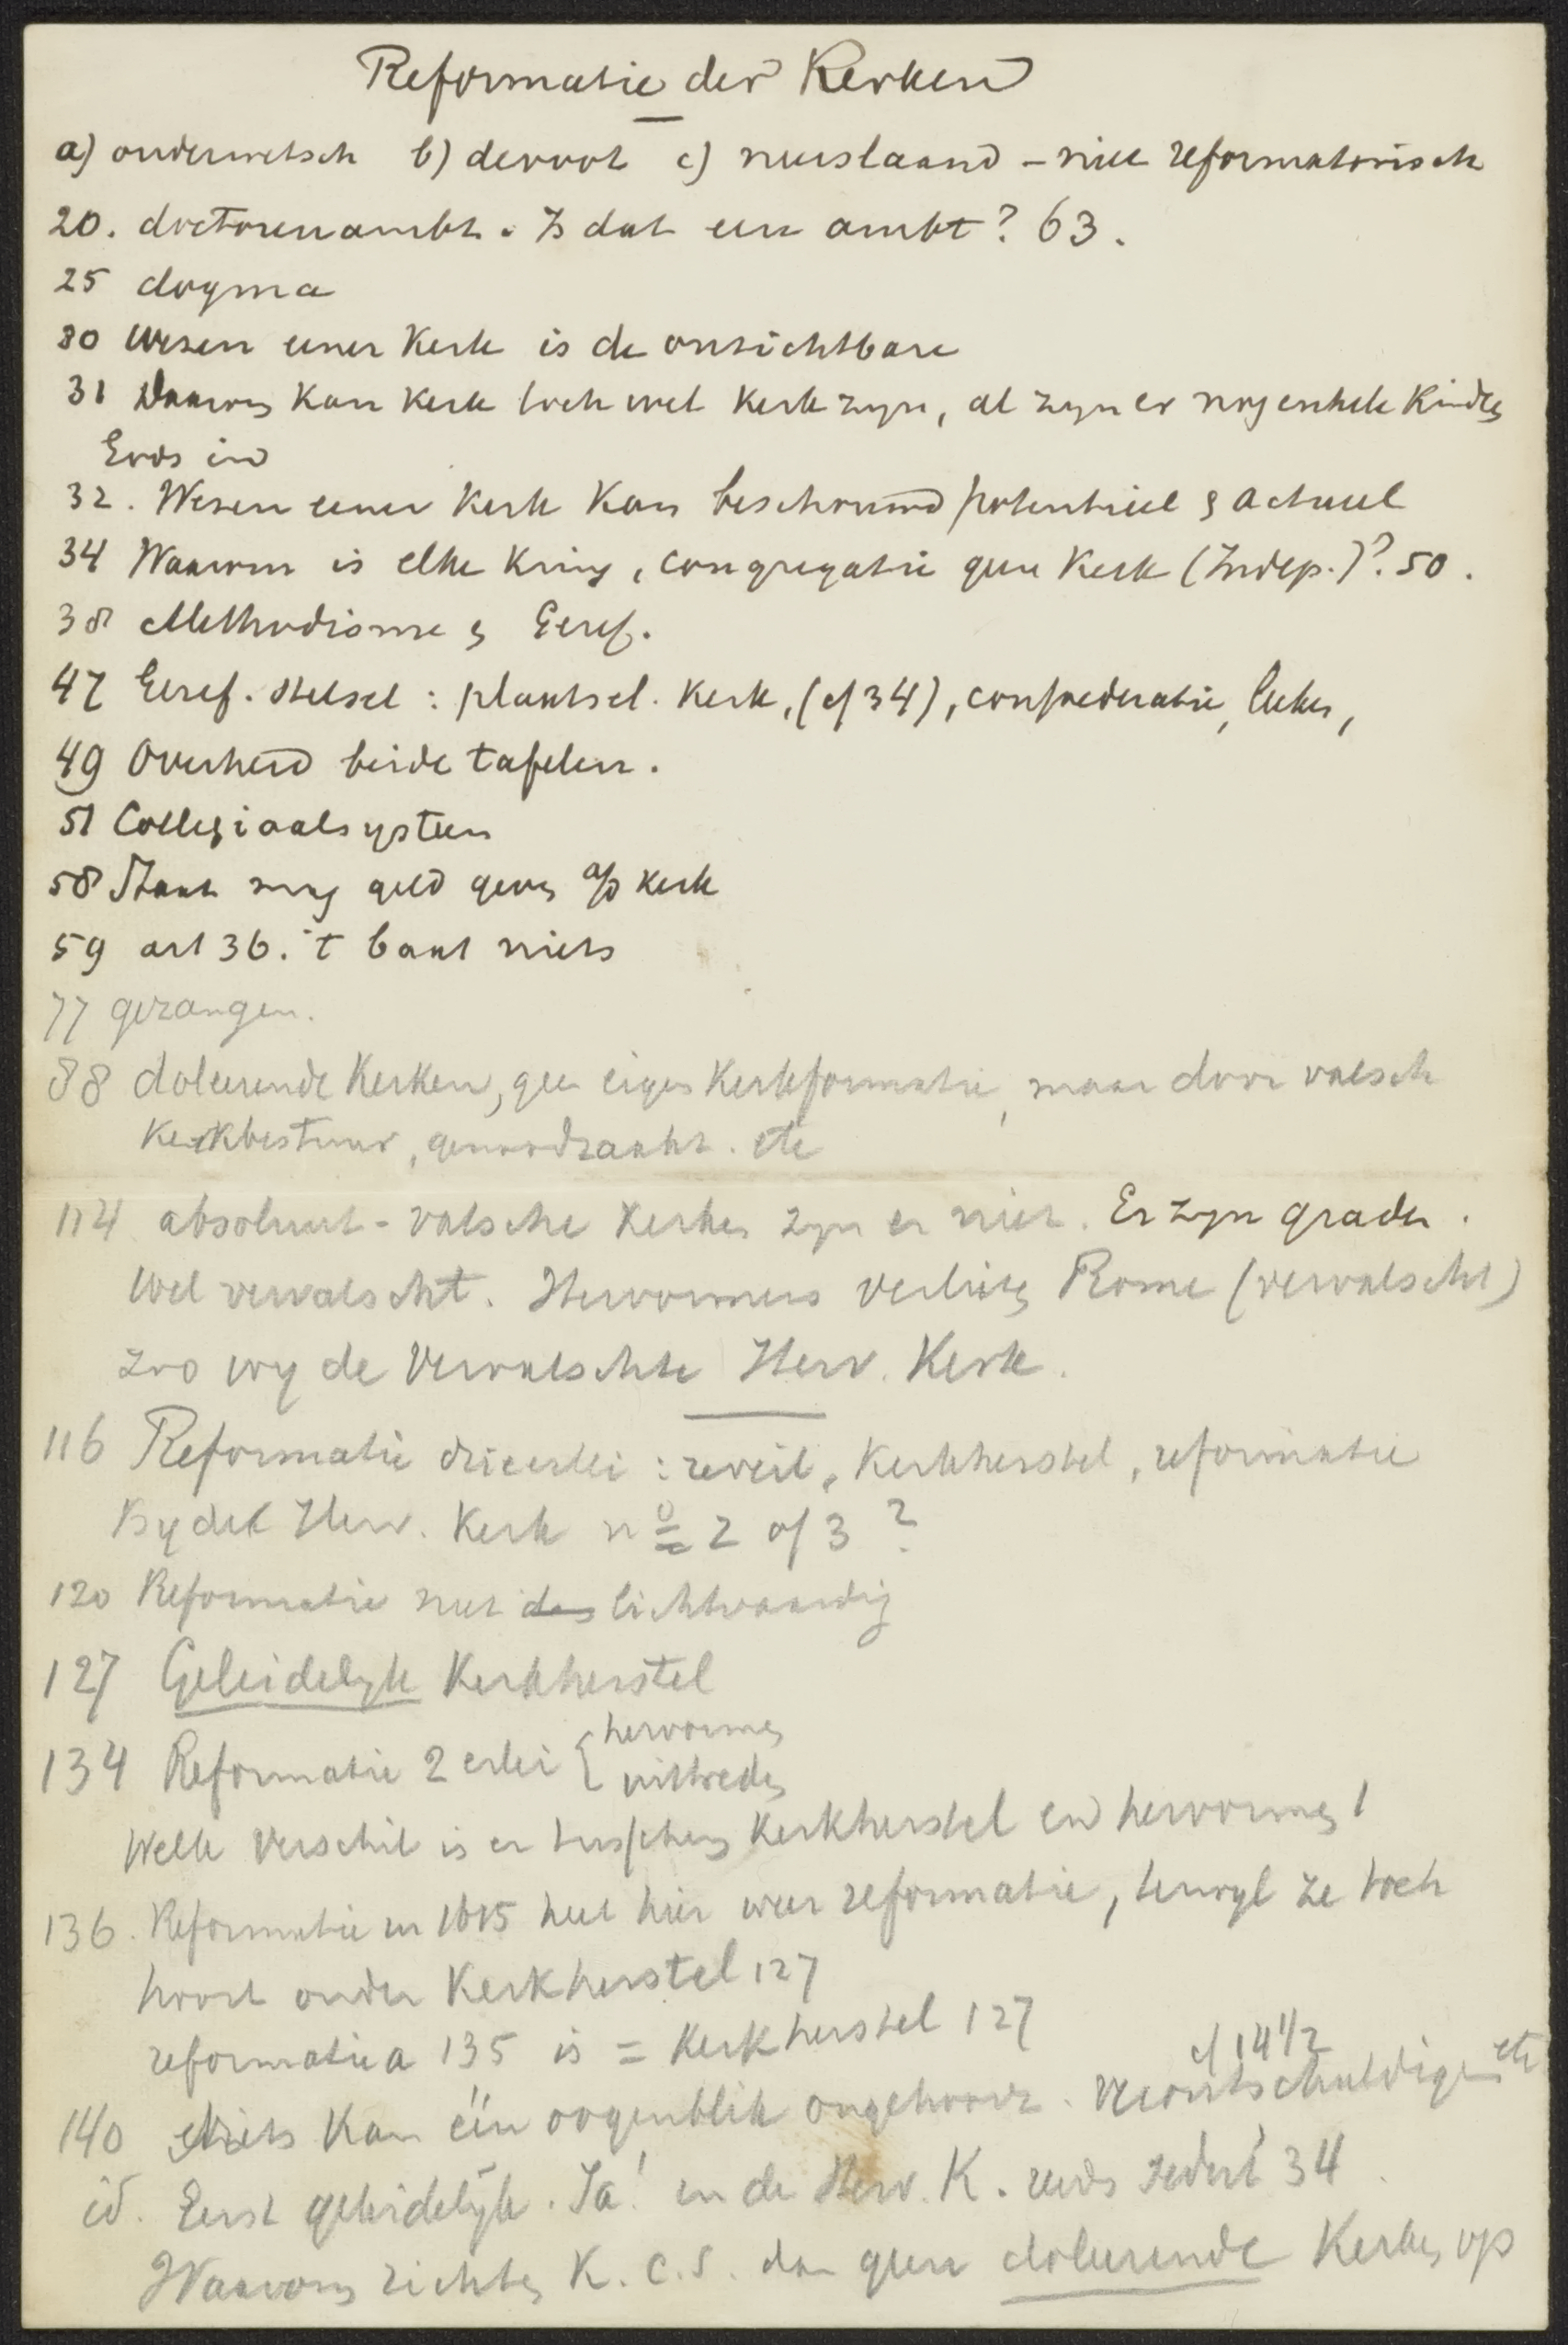 Reformatie der Kerken
a) ouderwetsch b) devoot c) nuustaand – niet reformatorisch
20. doctorenambt. Is dat een ambt? 63.
25 dogma
30 Wezen eener Kerk is de onzichtbare
31 Daarom kan kerk toch wel kerk zyn, al zyn er nog enkele Kinder
Gods in
32. Wezen eener Kerk kan beschouwd potentieel & actueel
34 Waarom is elke Kring, congregatie geen Kerk (Indep.)? 50.
38 Methodisme & Geref.
47 Geref. Stelsel: plaatsel. Kerk, (cf 34), confoederatie, leeken,
49 Overheid beide tafelen.
51 Collegiaalsysteem
58 Staat mag geld geven a/d Kerk
59 art 36. 't baat niets
77 gezangen.
88 doleerende Kerken, geen eigen Kerkformatie, maar door valsch
Kerkbestuur, genoodzaakt. etc
114 absoluut-valsche Kerken zyn er niet. Er zyn graden.
Wel vervalscht. Hervormers verlieten Rome (vervalscht)
zoo wy de Vervalschte Herv. Kerk.
116 Reformatie drieerlei: reveil, Kerkherstel, reformatie
By de Herv. Kerk nº 2 of 3?
120 Reformatie niet lichtvaardig
127 Geleidelyk Kerkherstel
134 Reformatie 2 erlei { hervormen
uittreden
Welk Verschil is er tusschen Kerkherstel en hervormen 1
136. Reformatie in 1815 heet hier weer reformatie, terwyl ze toch
hoort onder Kerkherstel 127
reformatie a 135 is = Kerkherstel 127
cf 141/2
140 Niets kan één oogenblik ongehoorz. verontschuldigen etc
id. Eerst geleidelyk. Ja! in de Herv. K. reeds sedert 34.
Waarom richten K. C. S. dan geen doleerende Kerken op